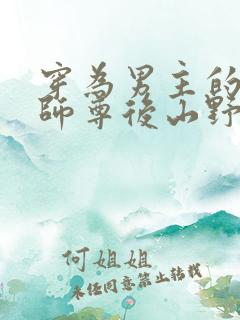 穿為男主的
師尊後山野
何姐姐
未经同意禁止转载